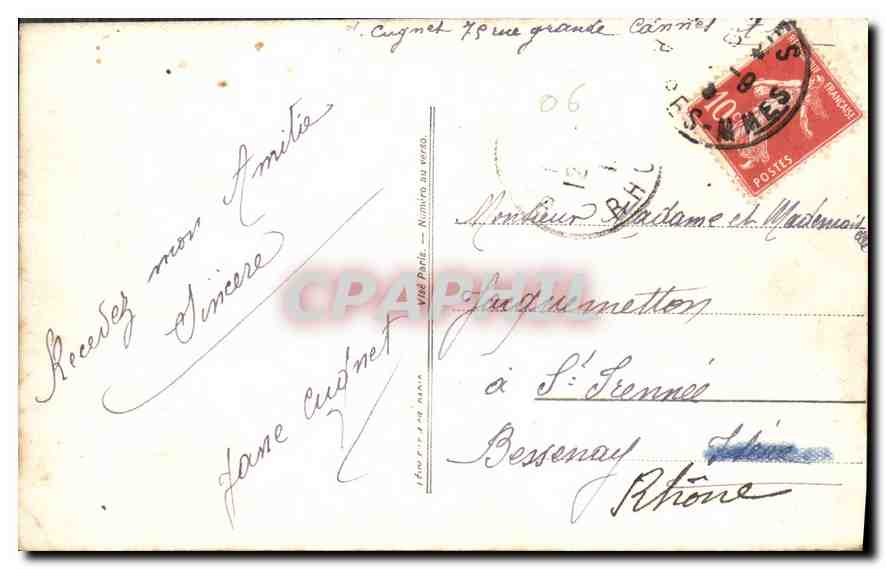 Cugnet 75 rue grande Cannes
06
RÉPUBLIQUE FRANÇAISE
10c
POSTES
12
RHO
Recevez mon Amitie
Sincere
Jane Cugnet
Visé Paris. — Numéro au verso.
CPAPHIL
Monsieur Madame et Mademoiselle
Jacquemetton
à St Irennée
Bessenay Isère
Rhône